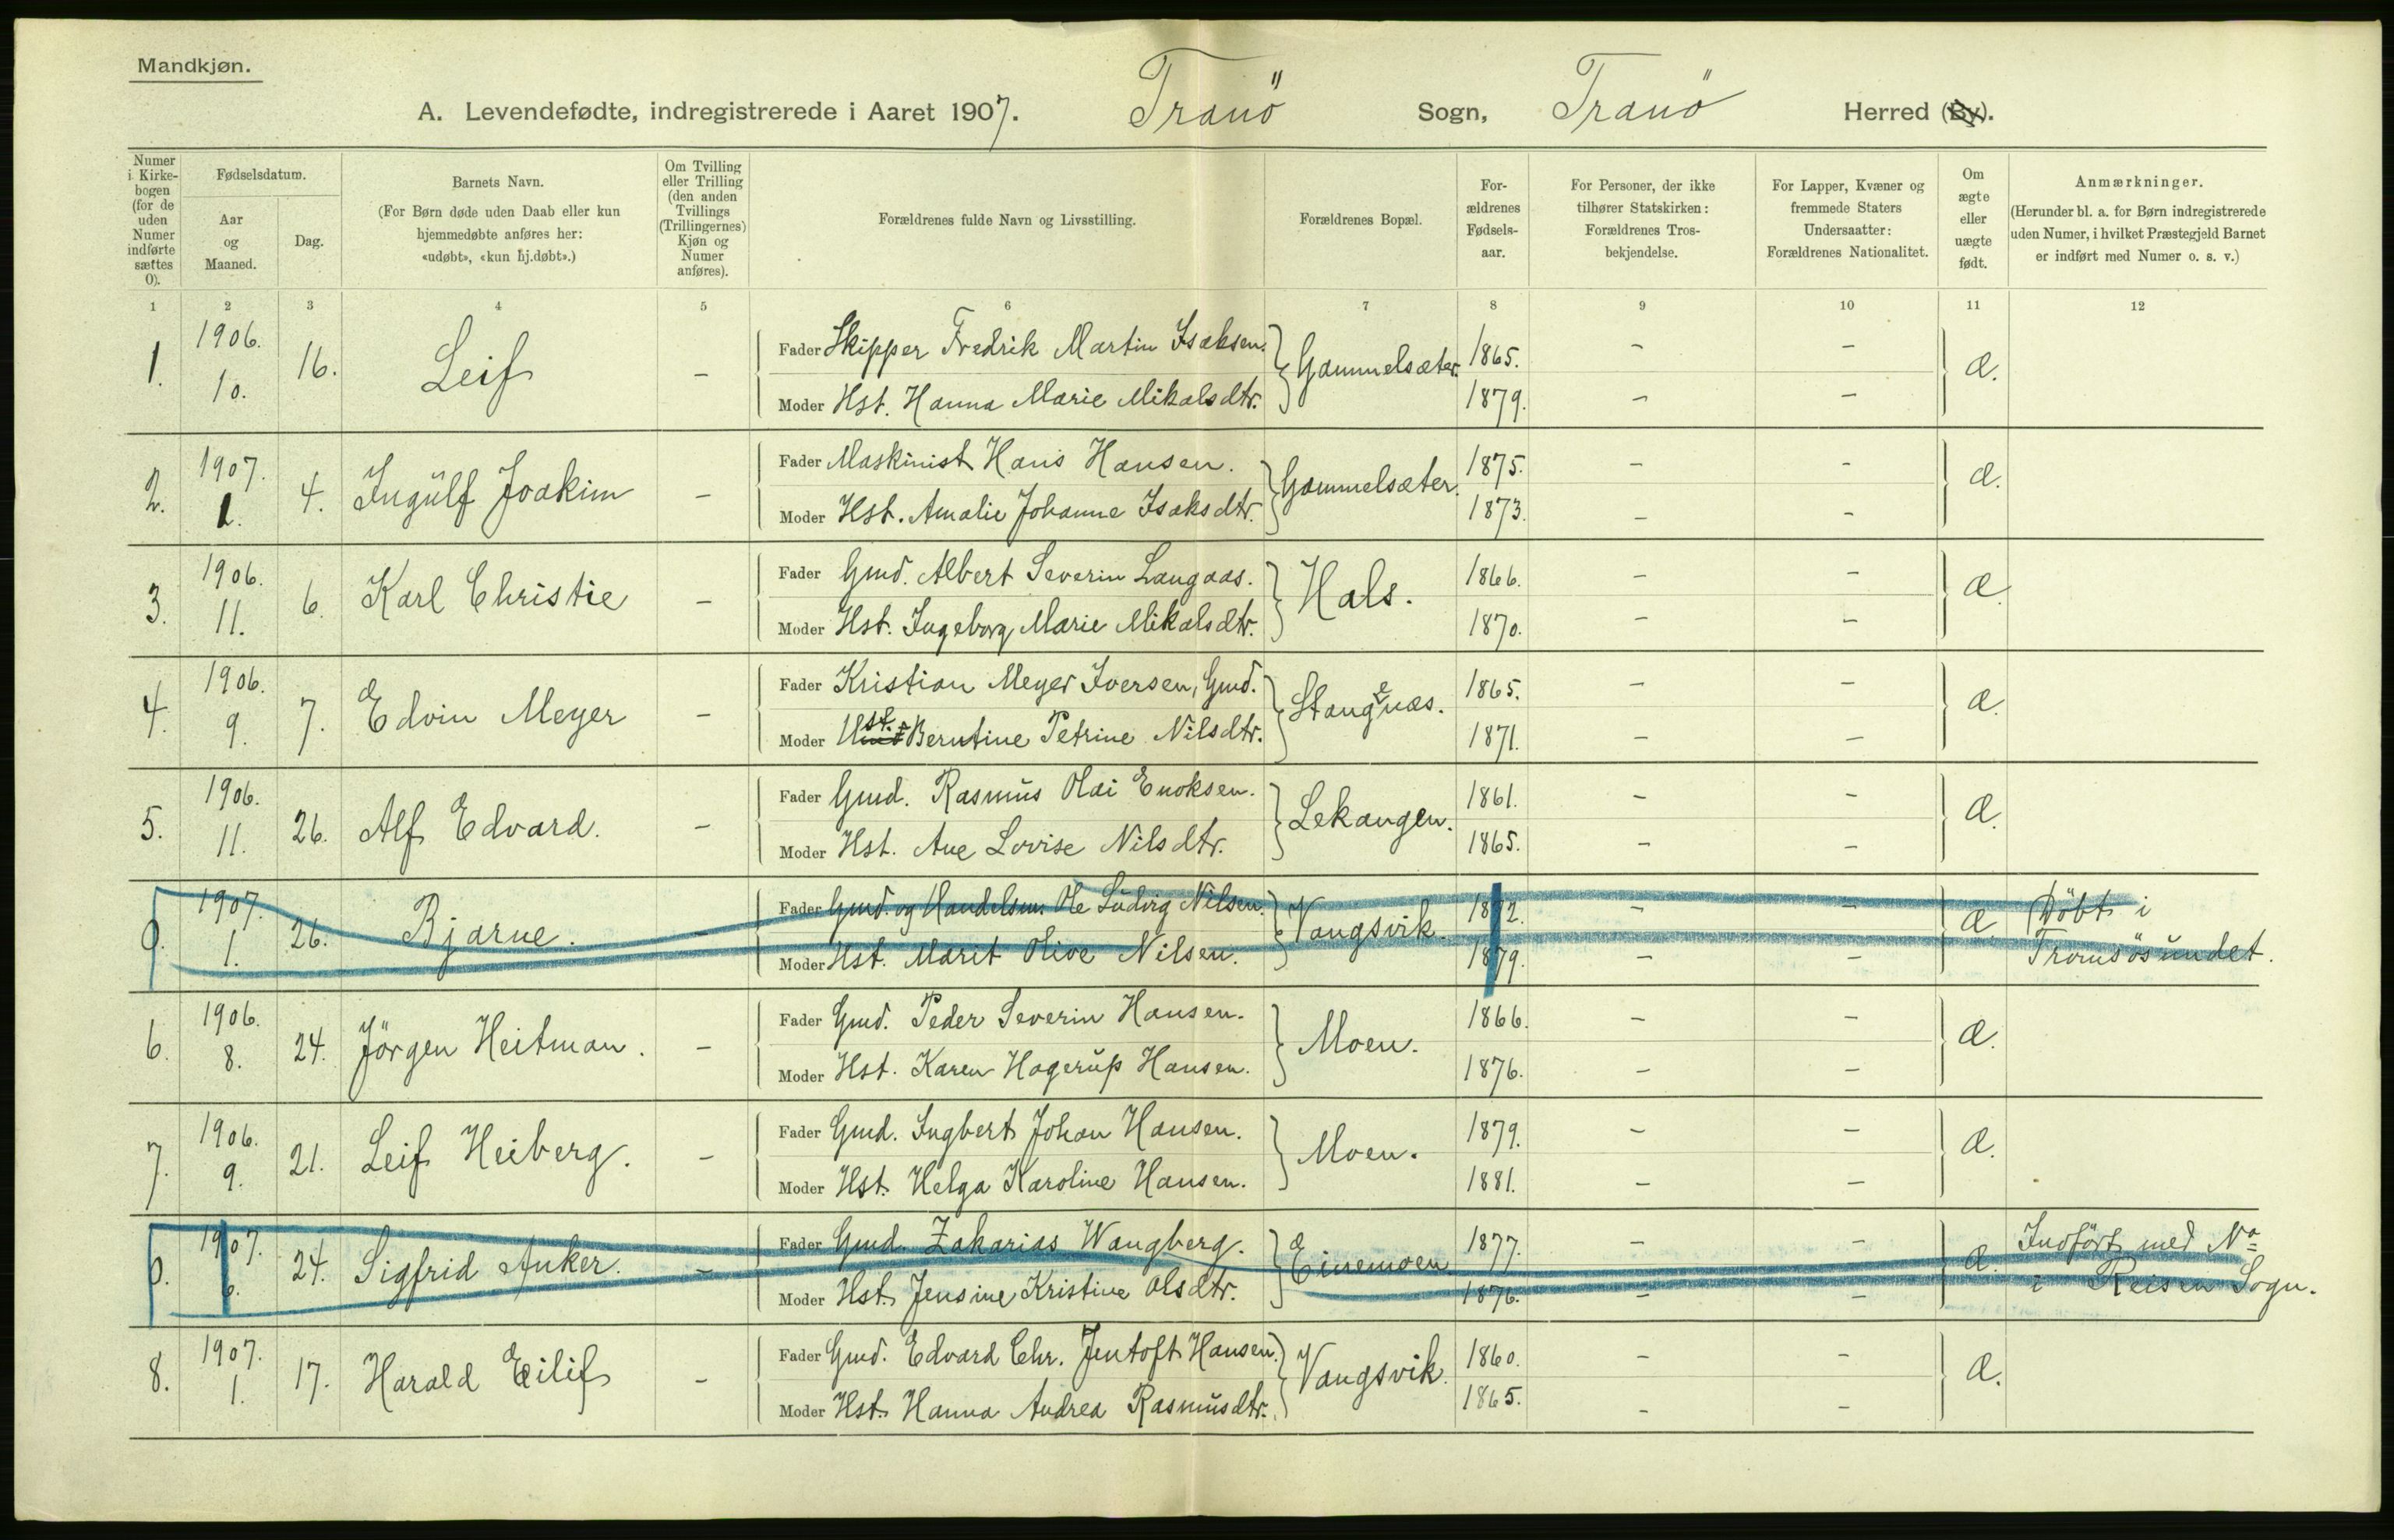 Mandkjøn.
A. Levendefødte, indregistrerede i Aaret 1907. Tranö Sogn, Tranö Herred (By).
Numer i Kirkebogen (for de uden Numer indførte sættes 0).
Fødselsdatum.
Aar og Maaned.
Dag.
Barnets Navn.
(For Børn døde uden Daab eller kun hjemmedøbte anføres her: «udøbt», «kun hj.døbt».)
Om Tvilling eller Trilling (den anden Tvillings (Trillingernes) Kjøn og Numer anføres).
Forældrenes fulde Navn og Livsstilling.
Forældrenes Bopæl.
Forældrenes Fødselsaar.
For Personer, der ikke tilhører Statskirken: Forældrenes Trosbekjendelse.
For Lapper, Kvæner og fremmede Staters Undersaatter: Forældrenes Nationalitet.
Om ægte eller uægte født.
Anmærkninger.
(Herunder bl. a. for Børn indregistrerede uden Numer, i hvilket Præstegjeld Barnet er indført med Numer o. s. v.)
1 2 3 4 5 6 7 8 9 10 11 12
1. 1906. 10. 16. Leif - Fader Skipper Fredrik Martin Isaksen. Gammelsæter. 1865. - - Æ.
Moder Hst. Hanna Marie Mikalsdtr. 1879. - -
2. 1907. 1. 4. Ingülf Joakim - Fader Maskinist Hans Hansen. Gammelsæter. 1875. - - Æ.
Moder Hst. Amalie Johanne Isaksdtr. 1873. - -
3. 1906. 11. 6. Karl Christie - Fader Gmd. Albert Severin Langaas. Hals. 1866. - - Æ.
Moder Hst. Ingeborg Marie Mikalsdtr. 1870. - -
4. 1906. 9. 7. Edvin Meyer - Fader Kristian Meyer Iversen, Gmd. Stangenæs. 1865. - - Æ.
Moder Hst. Berntine Petrine Nilsdtr. 1871. - -
5. 1906. 11. 26. Alf Edvard. - Fader Gmd. Rasmüs Olai Enoksen. Lekangen. 1861. - - Æ.
Moder Hst. Ane Lovise Nilsdtr. 1865. - -
0. 1907. 1. 26. Bjarne. - Fader Gmd. og Handelsm. Ole Lüdvig Nilsen. Vangsvik. 1872. - - Æ. Döbt i
Moder Hst. Marit Olive Nilsen. 1879. - - Tromsösundet.
6. 1906. 8. 24. Jörgen Heitman. - Fader Gmd. Peder Severin Hansen. Moen. 1866. - - Æ.
Moder Hst. Karen Hagerüp Hansen. 1876. - -
7. 1906. 9. 21. Leif Heiberg. - Fader Gmd. Ingbert Johan Hansen. Moen. 1879. - - Æ.
Moder Hst. Helga Karoline Hansen. 1881. - -
0. 1907. 6. 24. Sigfrid Anker. - Fader Gmd. Zakarias Wangberg. Einemoen 1877. - - Æ. Indfört med No
Moder Hst. Jensine Kristine Olsdtr. 1876. - - i Reisen Sogn.
8. 1907. 1. 17. Harald Eilif - Fader Gmd. Edvard Chr. Jentoft Hansen. Vangsvik. 1860. - - Æ.
Moder Hst. Hanna Andrea Rasmüsdtr. 1865. - -